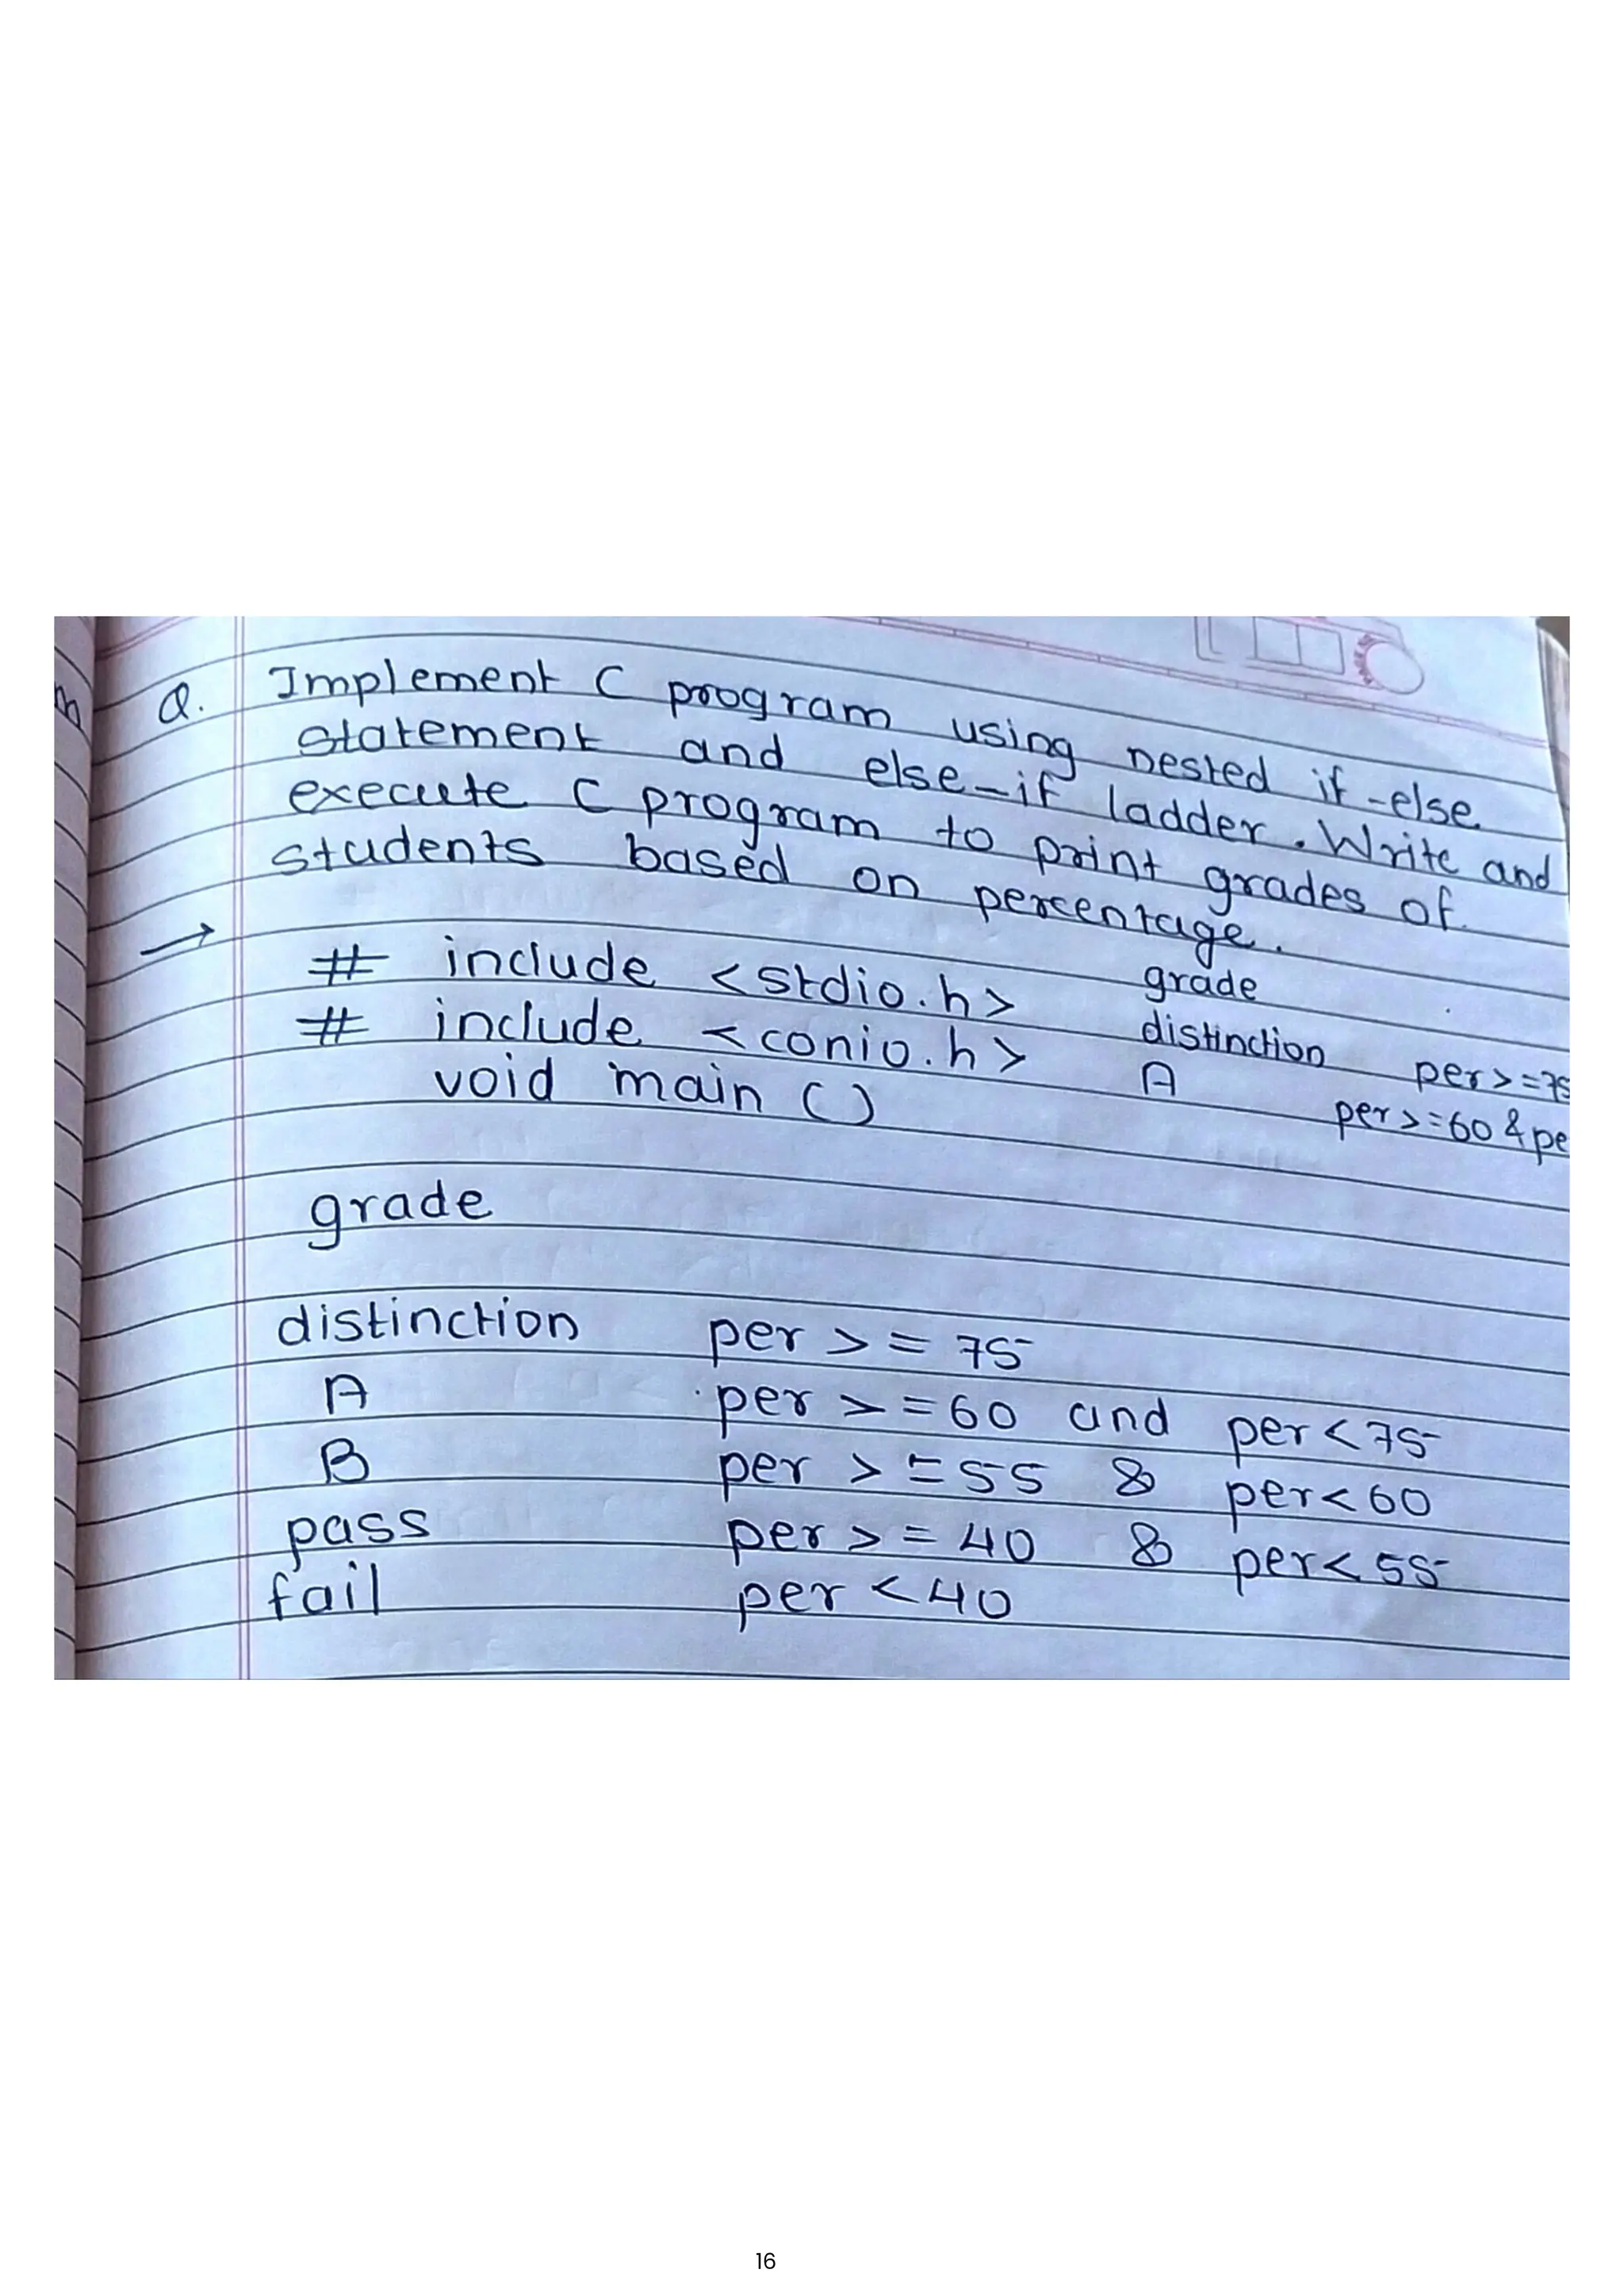 Q. Implement C program using nested if-else
statement and else-if ladder. Write and
execute C program to print grades of
students based on percentage.
→ # include <stdio.h> grade
# include <conio.h> distinction per>=75
void main () A per>=60 & pe
grade
distinction per >= 75
A per >=60 and per<75
B per >=55 & per<60
pass per >= 40 & per<55
fail per <40
16